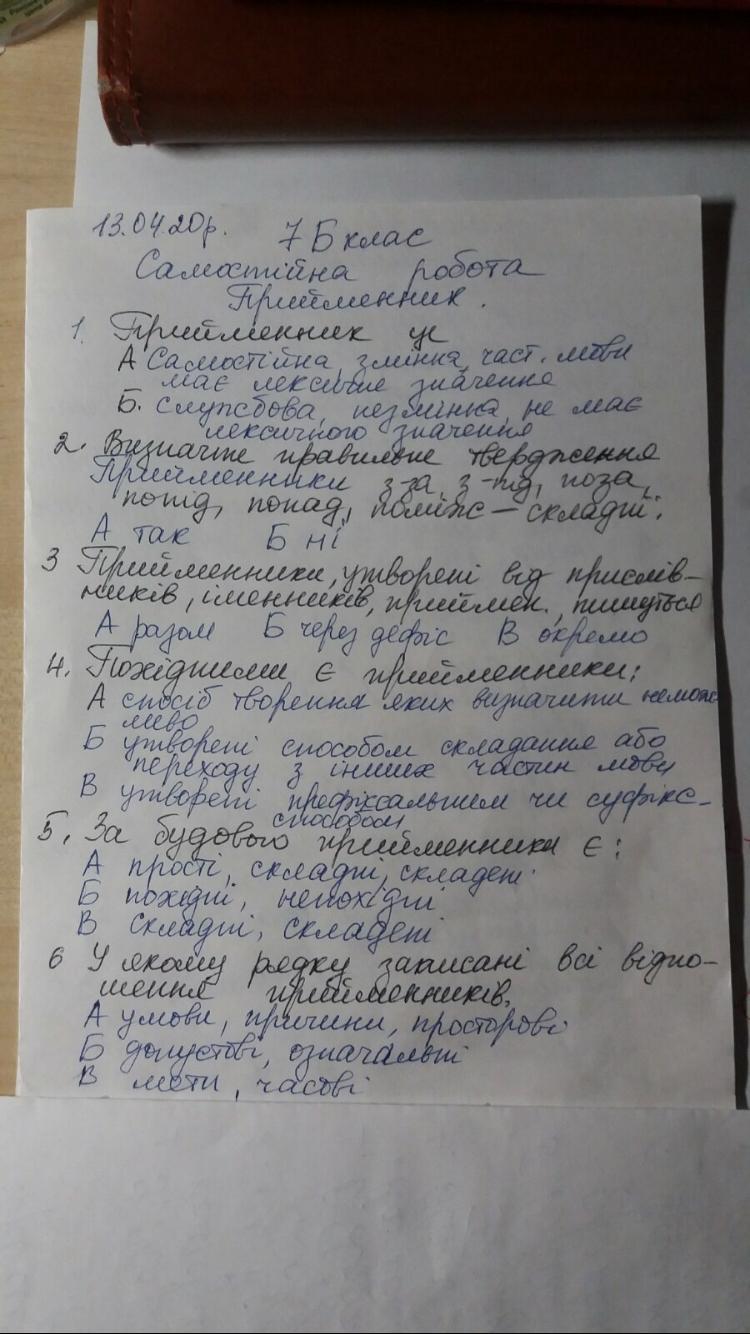 13.04.20р. 7 Б клас
Самостійна робота
Прийменник.
1. Прийменник це
А Самостійна змінна част. мови
має лексичне значення
Б. Службова, незмінна, не має
лексичного значення
2. Визначте правильне твердження
Прийменники з-за, з-під, поза,
попід, понад, поміж – складні.
А так Б ні
3 Прийменники, утворені від прислів-
ників, іменників, приймен., пишуться
А разом Б через дефіс В окремо
4. Похідними є прийменники:
А спосіб творення яких визначити немож
ливо
Б утворені способом складання або
переходу з інших частин мови
В утворені префіксальним чи суфікс-
способом
5. За будовою прийменники є:
А прості, складні, складені
Б похідні, непохідні
В складні, складені
6 У якому рядку записані всі відно-
шення прийменників.
А умови, причини, просторові
Б допустові, означальні
В мети, часові